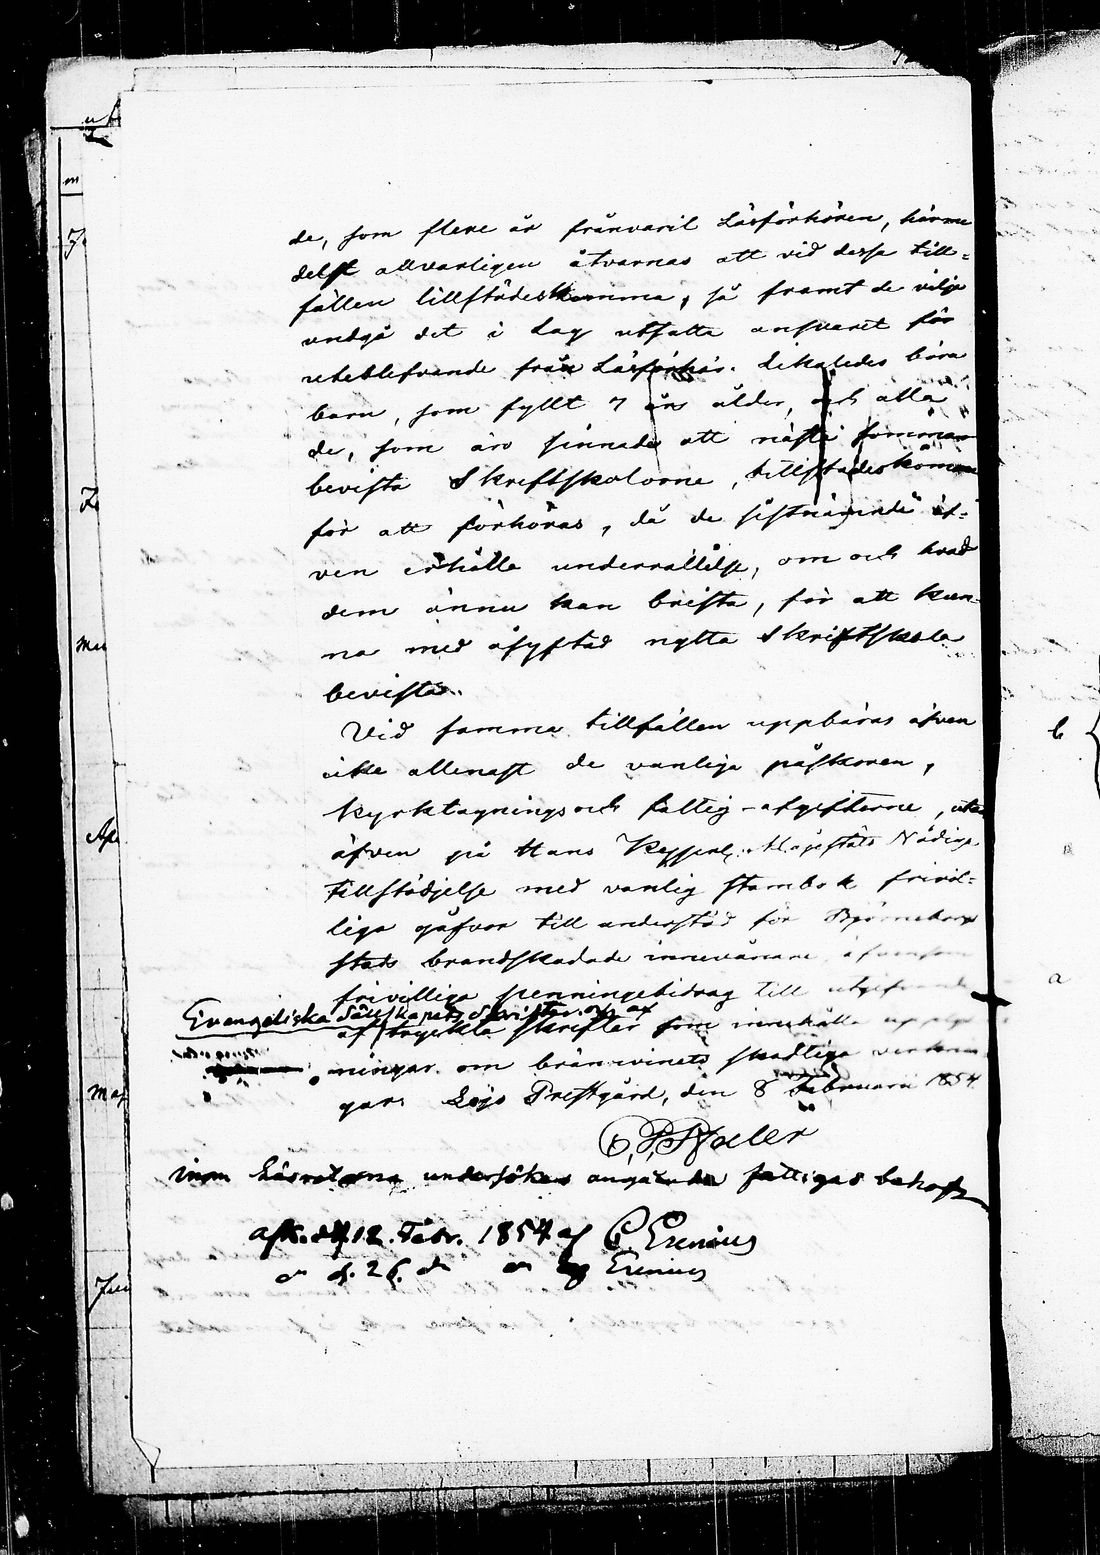 de, som flere år frånvarit Läsförhören, härme
delst allvarligen åtvarnas att vid dessa till-
fällen tillstädeskomma, så framt de vilja
undgå det i Lag utsatta ansvaret för
uteblifvande från Läsförhör. Likaledes böra
barn, som fyllt 7 års ålder, och alla
de, som äro sinnade att nästa sommar
bevista Skriftskolorne, tillstädeskomma
för att förhöras, då de sistnämnde äf-
ven erhålla underrättelse, om och hvad
dem ännu kan brista, för att kun-
na med åsyftad nytta Skriftskola
bevista.
Vid samma tillfällen uppbäras äfven
icke allenast de vanliga påskören,
kyrktagnings och fattig-afgifterne, utan
äfven på Hans Kejserl. Majestäts Nådiga
tillstädjelse med vanlig stambok frivil-
liga gåfvor till understöd för Björneborgs
stads brandskadade innevånare, äfvensom
frivilliga penningebidrag till utgifvande
Evangeliska Sällskapets Skrifter och af
af tryckta skrifter som innehålla upplys
ningar om bränvinets skadliga verknin
gar. Lojo Prestgård, den 8 Februari 1854
inom Läsrotarna undersökes angående fattigas behof
12. Febr. 1854 af C Erenius
d. 26. Erenius
m
Ap
Maj
Jun
b
a